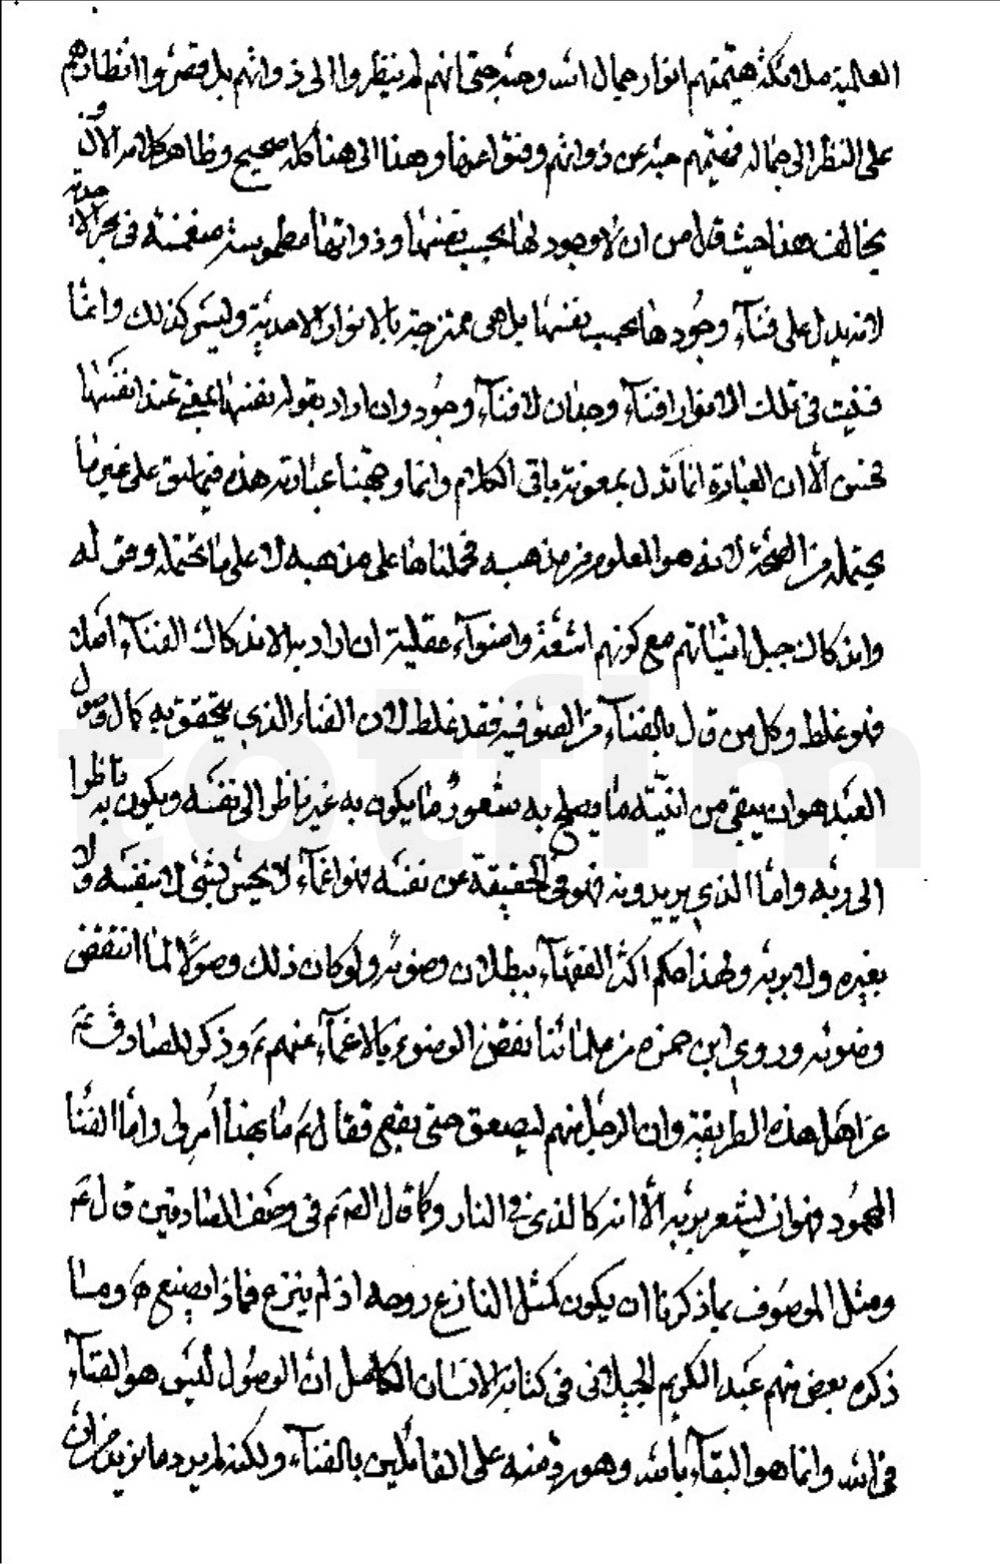 العالية ملاءمكة هيّمتهم انوار جمال الله وحبّه حتى انهم لم ينظروا الى ذواتهم بل قصروا انظارهم
على النظر الى جماله فغيّبهم حبّه عن ذواتهم وفنوا عنها وهذا الى هنا كله صحيح وظاهر كلامه الآن
يخالف هذا حيث قال من ان لا وجود لها بحسب نفسها وذواتها مطموسة منغمسة فى بحر الاحدية
لانه يدل على فناء وجودها بحسب نفسها بل هى ممتزجة بالانوار الاحدية وليس كذلك وانما
فنيت فى تلك الانوار فناء وجدان لا فناء وجود وان اراد بقوله نفسها يعنى عند انفسها
فحسن الّا ان العبارة انما تدل بمعونة باقى الكلام وانما وجّهنا عبارته هذه فيما سبق على غير ما
يحتمله من الصحّة لانه هو المعلوم من مذهبه فحملناها على مذهبه لا على ما تحتمله وقوله
واندكاك جبل انيّاتهم مع كونهم اشعّة واضواء عقلية ان اراد بالاندكاك الفناء اصلا
فهو غلط وكل من قال بالفناء من الصوفية فقد غلط لان الفناء الذى يتحقق به كمال وصول
العبد هو ان يبقى من انيّته ما يصلح به شعورٌ ما يكون به غير ناظر الى نفسه ويكون به ناظرا
الى ربّه وامّا الذى يريدونه فهو فى الحقيقة عن نفسه فهو اغماء لا يحسّ بشئ لا بنفسه ولا
بغيره ولا بربّه ولهذا حكم اكثر الفقهاء ببطلان وضوئه ولو كان ذلك وصولا لما انتقض
وضوئه وروى ابن حمزه من علمائنا نقض الوضوء بالاغماء عنهم ع وذكر للصادق ع
عن اهل هذه الطريقة وان الرجل منهم ليصعق حتى يقع فقال ع ما بهذا اُمر لى وامّا الفنا
المحمود فهو ان يشعر بربّه الّا انه كالذى فى النار وكما قال الص ع فى وصف الصادقين قال ع
ومثل الموصوف بما ذكرنا ان يكون كمثل النازع روحه اذ لم ينزع فماذا يصنع ه وممّا
ذكره بعض منهم عبد الكريم الجيلانى فى كتابه الانسان الكامل انّ الوصول ليس هو الفناء
فى الله وانما هو البقاء بالله وهو ردّ منه على القائلين بالفناء ولكنه لم يرد ما نريد من ان